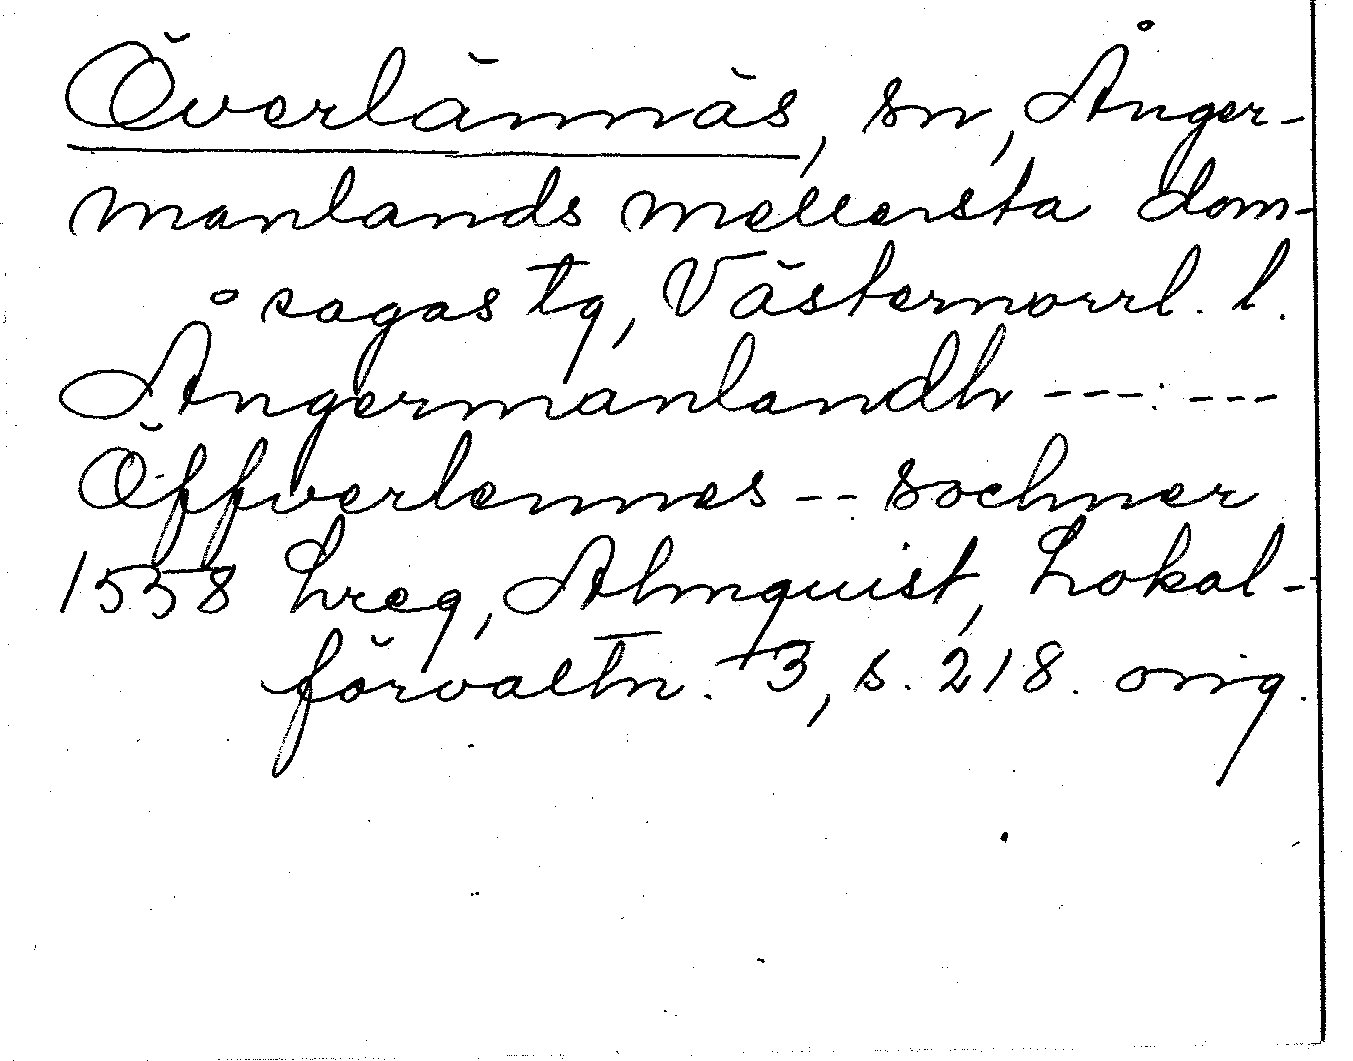 Överlännäs, sn, Ånger-
manlands mellersta dom-
sagas tg, Västernorrl. l.
Ångermanlandh --- ---
Öffverlennes -- sochner
1558 hreg, Almquist, Lokal-
förvaltn. 3, s. 218. orig.